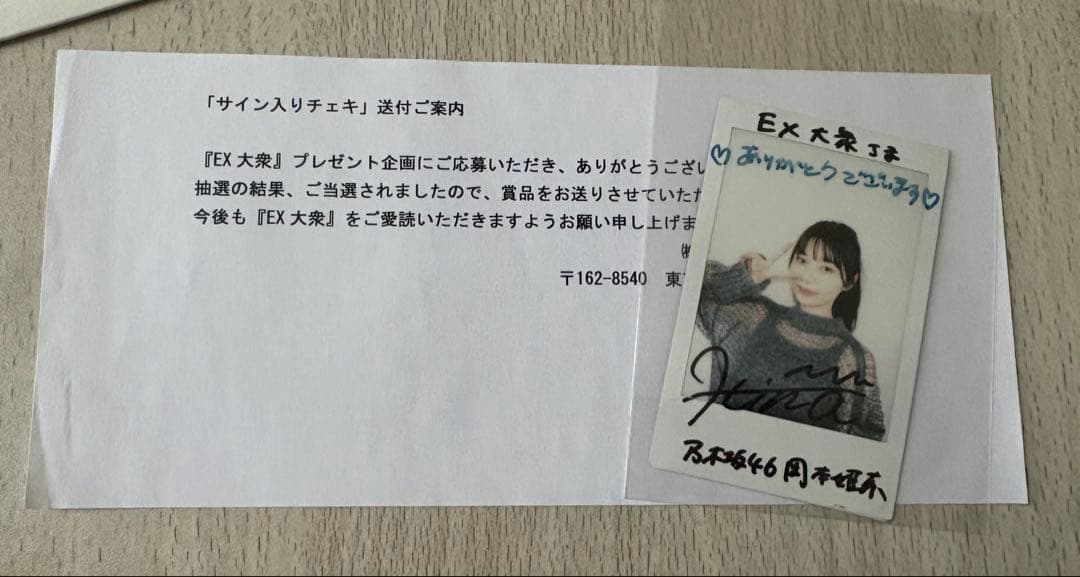 「サイン入りチェキ」送付ご案内
『EX大衆』プレゼント企画にご応募いただき、ありがとうござい
抽選の結果、ご当選されましたので、賞品をお送りさせていただ
今後も『EX大衆』をご愛読いただきますようお願い申し上げま
㈱
〒162-8540 東
EX大衆さま
♡ありがとうございます♡
Hina
乃木坂46 岡本姫奈